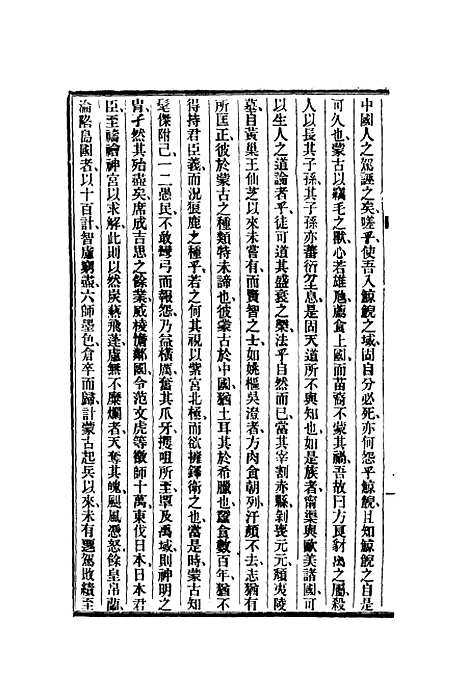 中國人之駕誣之矣嗟乎使吾入鯨鯢之域固自分必死亦何怨乎鯨鯢且知鯨鯢之自是
可久也蒙古以竊毛之獸心若雄虺薦食上國而苗裔不蒙其禍吾故曰方良豺虎之屬殺
人以長其子孫其子孫亦蕃衍至息是固天道所不與知也如是族者甯渠與歐美諸國可
以生人之道論者乎徒可道其盛衰之槩法乎自然而已當其宰割赤縣剝喪元元頹夷陵
墓自黃巢王仙芝以來未嘗有而賢智之士如姚樞吳澄者方肉食朝列汗顏不去志猶有
所匡正彼於蒙古之種類特未諦也彼蒙古於中國猶土耳其於希臘也蠶食數百年猶不
得持君臣義而況狼鹿之種乎若之何其視以紫宮北極而欲擁鐸衛之也當是時蒙古知
髦傑附己一二愚民不敢彎弓而報怨乃益橫厲奮其爪牙攫咀所至覃及禹域則神明之
胄孑然其殆盡矣席成吉思之餘業威棱憺鄰國令范文虎等徵師十萬東伐日本日本君
臣至禱禬神宮以求解此則以然炭爇飛蓬虛無不糜爛者天奪其魄颶風憑怒餘皇帛蘭
淪陷島國者以十百計智慮窮盡六師墨色倉卒而歸計蒙古起兵以來未有遝駕敗績至